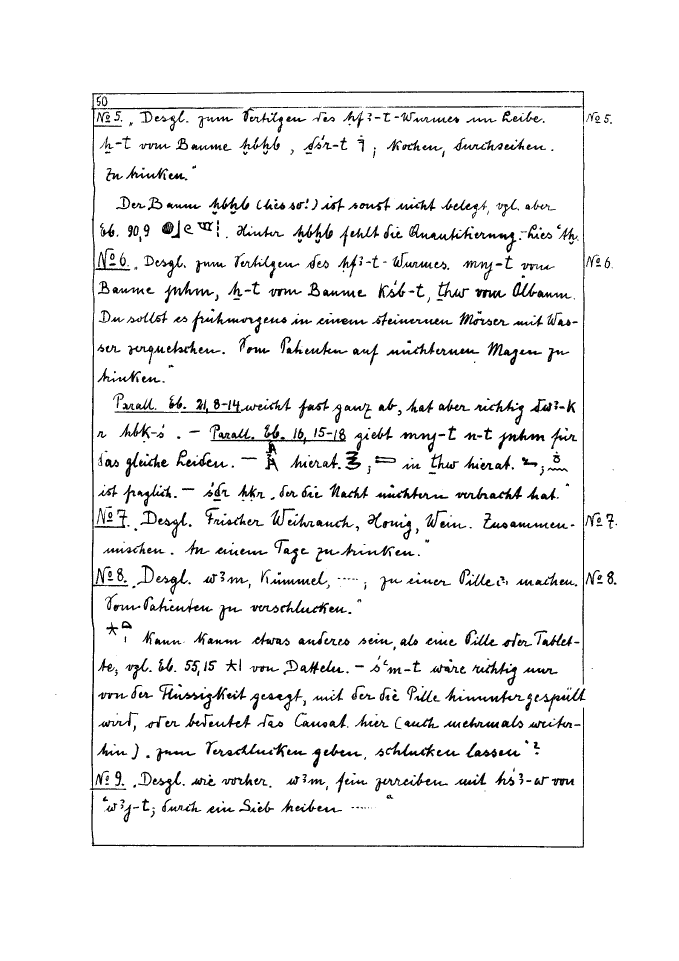 50
№ 5. „Desgl. zum Vertilgen des ḥfꜣ-t-Wurmes im Leibe. № 5.
ẖ-t vom Baume ḫbḫb, dśr-t; Kochen, Durchseihen.
Zu trinken."
Der Baum ḫbḫb (lies so!) ist sonst nicht belegt, vgl. aber
Eb. 90,9. Hinter ḫbḫb fehlt die Quantitierung. Lies
№ 6. „Desgl. zum Vertilgen des ḥfꜣ-t-Wurmes. mnj-t vom № 6.
Baume jnhm, ẖ-t vom Baume kśb-t, ṯhw vom Ölbaum.
Du sollst es frühmorgens in einem steinernen Mörser mit Was-
ser zerquetschen. Vom Patienten auf nüchternen Magen zu
trinken."
Parall. Eb. 21, 8-14 weicht fast ganz ab, hat aber richtig dwꜣ-k
r hbk-ś. — Parall. Eb. 16, 15-18 giebt mnj-t n-t jnhm für
das gleiche Leiden. — hierat. ; in ṯhw hierat. ;
ist fraglich. — śḏr ḥkr „der die Nacht nüchtern verbracht hat."
№ 7. „Desgl. Frischer Weihrauch, Honig, Wein. Zusammen- № 7.
mischen. An einem Tage zu trinken."
№ 8. „Desgl. wꜣm, Kümmel, ·····; zu einer Pille machen. № 8.
Vom Patienten zu verschlucken."
kann kaum etwas anderes sein, als eine Pille oder Tablet-
te, vgl. Eb. 55,15 von Datteln. — śꜥm-t wäre richtig nur
von der Flüssigkeit gesagt, mit der die Pille hinuntergespült
wird, oder bedeutet das Causat. hier (auch mehrmals weiter-
hin) „zum Verschlucken geben, schlucken lassen"?
№ 9. „Desgl. wie vorher. wꜣm, fein zerreiben mit ḥśꜣ-w von
ꜥwꜣj-t; durch ein Sieb treiben ······"